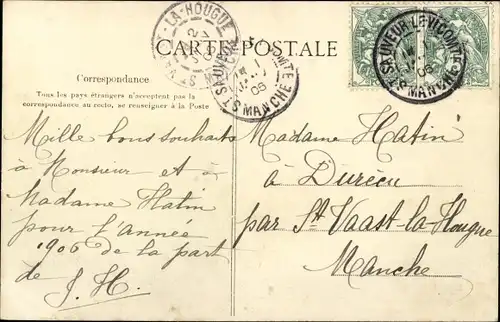 CARTE POSTALE
Correspondance
Tous les pays étrangers n'acceptent pas la
correspondance au recto, se renseigner à la Poste
Mille bons souhaits
à Monsieur et à
Madame Hatin
pour l'année
1906 de la part
de J. H.
Madame Hatin
à Durécu
par St Vaast-la-Hougue
Manche
LA-HOUGUE
ST SAUVEUR
MANCHE
ST SAUVEUR-LE-VICOMTE
MANCHE